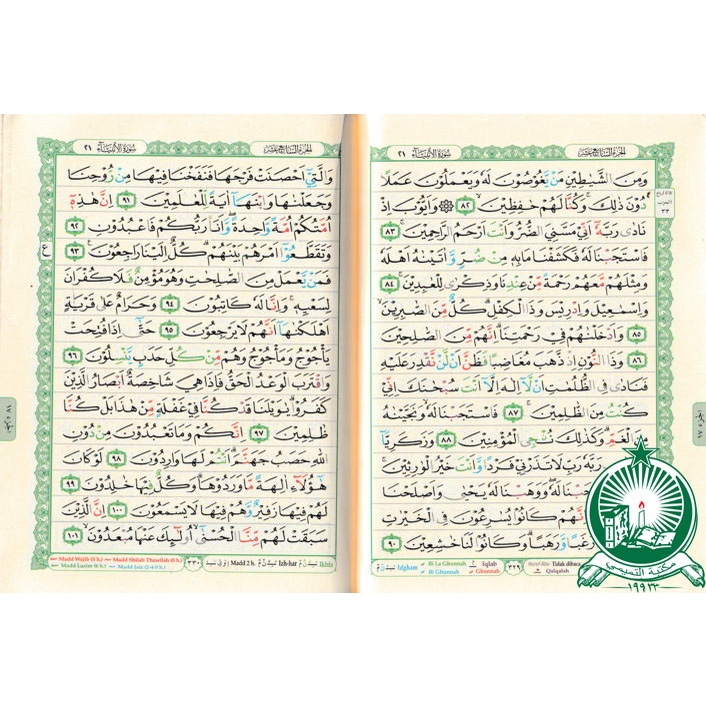 الجزء السابع عشر
سورة الأنبياء ٢١
وَمِنَ الشَّيٰطِيْنِ مَنْ يَّغُوْصُوْنَ لَهٗ وَيَعْمَلُوْنَ عَمَلًا
دُوْنَ ذٰلِكَۚ وَكُنَّا لَهُمْ حٰفِظِيْنَۙ ٨٢ ۞ وَاَيُّوْبَ اِذْ
نَادٰى رَبَّهٗٓ اَنِّيْ مَسَّنِيَ الضُّرُّ وَاَنْتَ اَرْحَمُ الرَّاحِمِيْنَۚ ٨٣
فَاسْتَجَبْنَا لَهٗ فَكَشَفْنَا مَا بِهٖ مِنْ ضُرٍّ وَّاٰتَيْنٰهُ اَهْلَهٗ
وَمِثْلَهُمْ مَّعَهُمْ رَحْمَةً مِّنْ عِنْدِنَا وَذِكْرٰى لِلْعٰبِدِيْنَۚ ٨٤
وَاِسْمٰعِيْلَ وَاِدْرِيْسَ وَذَا الْكِفْلِۗ كُلٌّ مِّنَ الصّٰبِرِيْنَۙ
٨٥ وَاَدْخَلْنٰهُمْ فِيْ رَحْمَتِنَاۗ اِنَّهُمْ مِّنَ الصّٰلِحِيْنَ
٨٦ وَذَا النُّوْنِ اِذْ ذَّهَبَ مُغَاضِبًا فَظَنَّ اَنْ لَّنْ نَّقْدِرَ عَلَيْهِ
فَنَادٰى فِى الظُّلُمٰتِ اَنْ لَّآ اِلٰهَ اِلَّآ اَنْتَ سُبْحٰنَكَ اِنِّيْ
كُنْتُ مِنَ الظّٰلِمِيْنَۚ ٨٧ فَاسْتَجَبْنَا لَهٗۙ وَنَجَّيْنٰهُ
مِنَ الْغَمِّۗ وَكَذٰلِكَ نُنْجِى الْمُؤْمِنِيْنَ ٨٨ وَزَكَرِيَّآ
رَبَّهٗ رَبِّ لَا تَذَرْنِيْ فَرْدًا وَّاَنْتَ خَيْرُ الْوٰرِثِيْنَۚ
لَهٗۖ وَوَهَبْنَا لَهٗ يَحْيٰى وَاَصْلَحْنَا
كَانُوْا يُسٰرِعُوْنَ فِى الْخَيْرٰتِ
رَغَبًا وَّرَهَبًاۗ وَكَانُوْا لَنَا خٰشِعِيْنَ ٩٠
٣٢٩
Idgham
Bi La Ghunnah
Bi Ghunnah
Iqlab
Ghunnah
Huruf Abu Tidak dibaca
Qalqalah
سورة الأنبياء ٢١
وَالَّتِيْٓ اَحْصَنَتْ فَرْجَهَا فَنَفَخْنَا فِيْهَا مِنْ رُّوْحِنَا
وَجَعَلْنٰهَا وَابْنَهَآ اٰيَةً لِّلْعٰلَمِيْنَ ٩١ اِنَّ هٰذِهٖٓ
اُمَّتُكُمْ اُمَّةً وَّاحِدَةًۖ وَّاَنَا۠ رَبُّكُمْ فَاعْبُدُوْنِ ٩٢
وَتَقَطَّعُوْٓا اَمْرَهُمْ بَيْنَهُمْۗ كُلٌّ اِلَيْنَا رٰجِعُوْنَ ٩٣
فَمَنْ يَّعْمَلْ مِنَ الصّٰلِحٰتِ وَهُوَ مُؤْمِنٌ فَلَا كُفْرَانَ
لِسَعْيِهٖۚ وَاِنَّا لَهٗ كَاتِبُوْنَ ٩٤ وَحَرَامٌ عَلٰى قَرْيَةٍ
اَهْلَكْنٰهَآ اَنَّهُمْ لَا يَرْجِعُوْنَ ٩٥ حَتّٰىٓ اِذَا فُتِحَتْ
يَأْجُوْجُ وَمَأْجُوْجُ وَهُمْ مِّنْ كُلِّ حَدَبٍ يَّنْسِلُوْنَ ٩٦
وَاقْتَرَبَ الْوَعْدُ الْحَقُّ فَاِذَا هِيَ شَاخِصَةٌ اَبْصَارُ الَّذِيْنَ
كَفَرُوْاۗ يٰوَيْلَنَا قَدْ كُنَّا فِيْ غَفْلَةٍ مِّنْ هٰذَا بَلْ كُنَّا
ظٰلِمِيْنَ ٩٧ اِنَّكُمْ وَمَا تَعْبُدُوْنَ مِنْ دُوْنِ
اللّٰهِ حَصَبُ جَهَنَّمَۗ اَنْتُمْ لَهَا وَارِدُوْنَ ٩٨ لَوْ كَانَ
هٰٓؤُلَاۤءِ اٰلِهَةً مَّا وَرَدُوْهَاۗ وَكُلٌّ فِيْهَا خٰلِدُوْنَ ٩٩
لَهُمْ فِيْهَا زَفِيْرٌ وَّهُمْ فِيْهَا لَا يَسْمَعُوْنَ ١٠٠ اِنَّ الَّذِيْنَ
سَبَقَتْ لَهُمْ مِّنَّا الْحُسْنٰىٓۙ اُولٰۤىِٕكَ عَنْهَا مُبْعَدُوْنَۙ ١٠١
Madd Wajib (5 h.)
Madd Shilah Thawilah (5 h.)
Madd Lazim (6 h.)
Madd Jaiz (2-4-5 h.)
٣٣٠
Madd 2 h.
Izh-har
Ikhfa
مكتبة التميمي